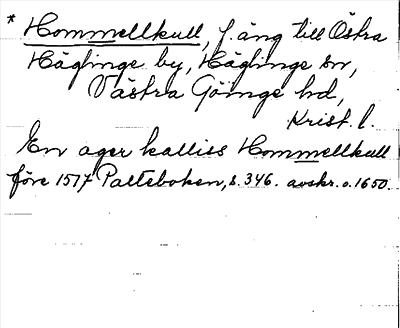 * Hommellkull, f. äng till Östra
Häglinge by, Häglinge sn,
Västra Göinge hd,
Krist. l.
En ager kalliss Hommellkull
före 1577 Palteboken, s. 346. avskr. o. 1650.